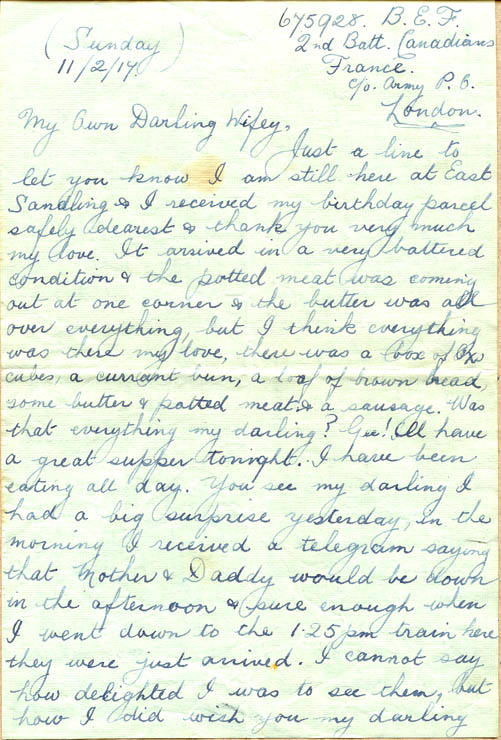 675928. B.E.F.
(Sunday) 2nd Batt. Canadians
11/2/17. France.
c/o. Army P.O.
London.
My Own Darling Wifey,
Just a line to
let you know I am still here at East
Sandling & I received my birthday parcel
safely dearest & thank you very much
my love. It arrived in a very battered
condition & the potted meat was coming
out at one corner & the butter was all
over everything, but I think everything
was there my love, there was a box of Oxo
cubes, a currant bun, a loaf of brown bread,
some butter & potted meat & a sausage. Was
that everything my darling? Gee! I'll have
a great supper tonight. I have been
eating all day. You see my darling I
had a big surprise yesterday, in the
morning I received a telegram saying
that Mother & Daddy would be down
in the afternoon & sure enough when
I went down to the 1.25pm train here
they were just arrived. I cannot say
how delighted I was to see them, but
how I did wish you my darling